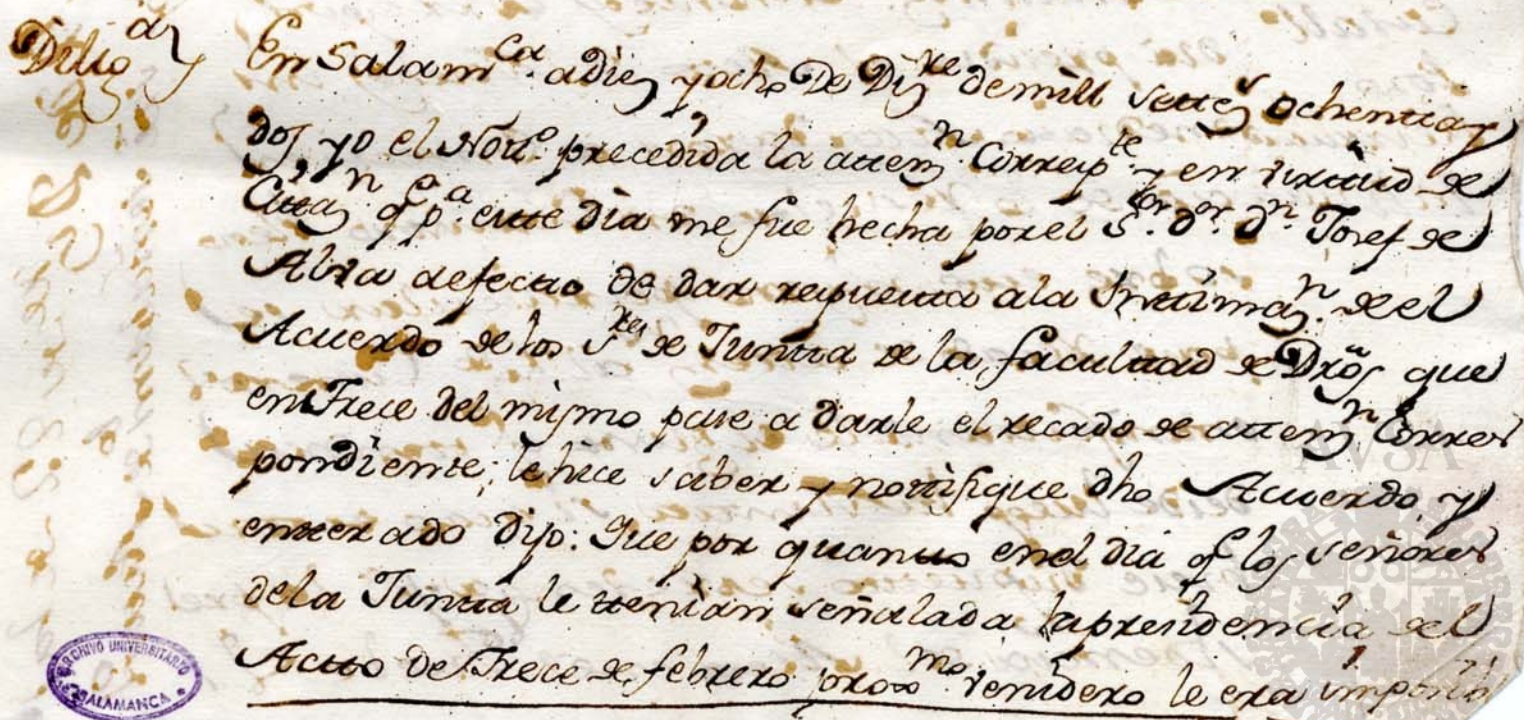 Diligª
En Salamca. a diez y ocho De Dizre de mill settes ochenta y
dos, yo el Nottº. precedida la attenzn. Correspte. y en virtud de
Cittazn. q pª. este dia me fue hecha por el Sor. Dor. Dn. Josef de
Alva a efecto de dar respuesta a la Intimazn. de el
Acuerdo de los Sres de Junta de la facultad de Dros que
en Trece del mismo pase a darle el recado de attenzn Corres
pondiente; le hice saber y nottifique dho Acuerdo, y
enterado dijo: Que por quanto en el dia q los señores
de la Junta le tenian señalada la presidencia del
Acto de Trece de febrero proxmo. venidero le era imposi
ARCHIVO UNIVERSITARIO
SALAMANCA
AVSA